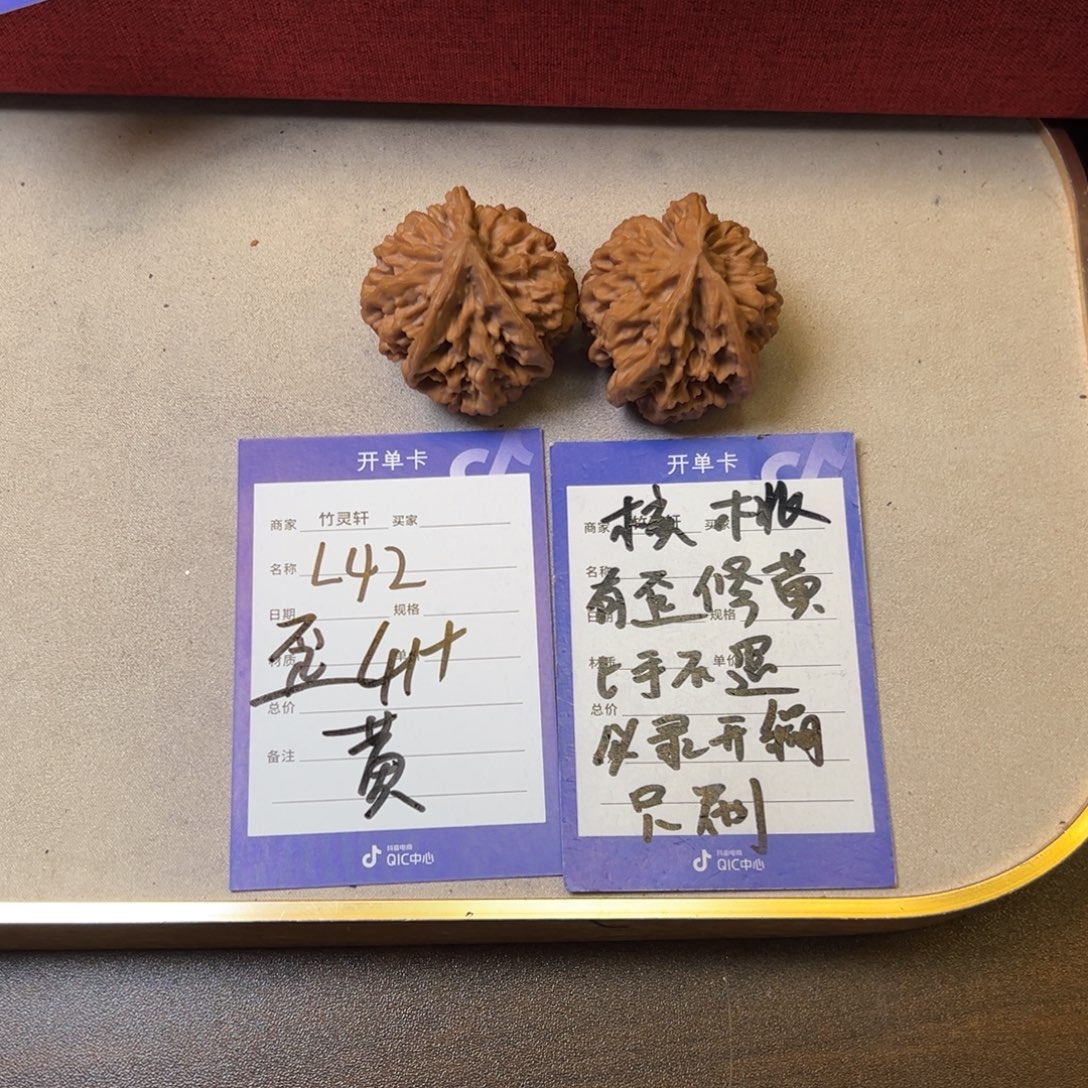 开单卡
商家 竹灵轩 买家
名称 L42
日期 规格
材质 单价
歪 4H
总价
黄
备注
抖音电商
QIC中心
开单卡
商家 竹灵轩 买家
核桃
名称
有歪 修 黄
日期 规格
材质 单价
上手不退
总价
必录开箱
只刷
抖音电商
QIC中心